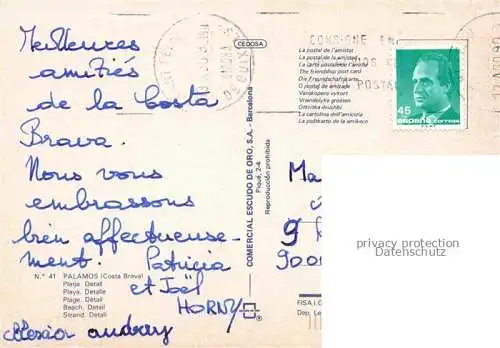 Meilleures
amitiés
de la Costa
Brava.
Nous vous
embrassons
bien affectueuse-
ment. Patricia
et Joël
HORNY
audrey
N.° 41 PALAMOS (Costa Brava)
Platja. Detall
Playa. Detalle
Plage. Détail
Beach. Detail
Strand. Detail
CEDOSA
COMERCIAL ESCUDO DE ORO, S.A. - Barcelona
Piqué, 2-4
Reproducción prohibida
CONSIGNE EN
POSTAL
La postal de l'amistat
La postal de la amistad
La carte postale de l'amitié
The friendship post card
Die Freundschaftskarte
O postal da amizade
Vanskapens vykort
Vriendelijke groeten
La cartolina dell'amicizia
La poŝtkarto de la amikeco
45
ESPAÑA CORREOS
Ma
9
9000
privacy protection
Datenschutz
FISA I.G.
Dep. Le